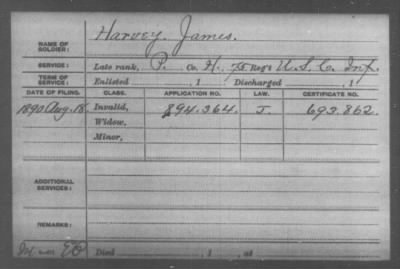 NAME OF SOLDIER: Harvey, James.
SERVICE: Late rank, P. Co. H, 75 Reg't U.S.C. Inf.
TERM OF SERVICE: Enlisted , 1 Discharged , 1
DATE OF FILING. CLASS. APPLICATION NO. LAW. CERTIFICATE NO.
1890 Aug. 18 Invalid, 894.364. J. 693.862.
Widow,
Minor,
ADDITIONAL SERVICES:
REMARKS:
Died , 1 , at